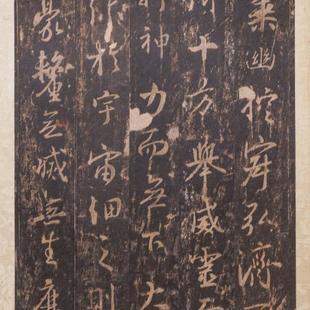 乘幽控寂弘濟萬
御十方舉威靈而
抑神力而無下大
彌於宇宙細之則
豪釐無滅無生歷